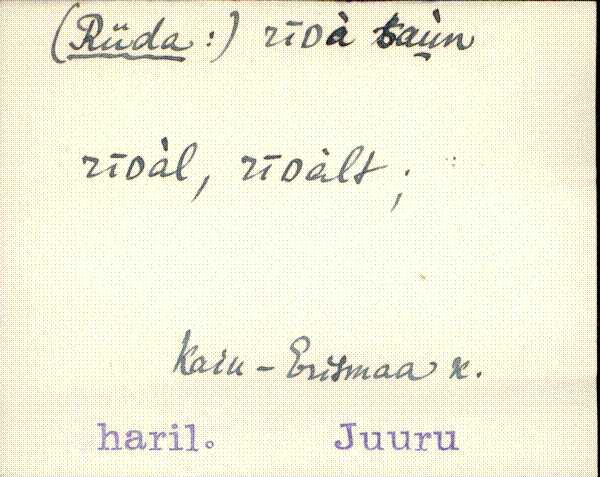 (Rüda:) rīᴅà saùn
rīᴅàl, rīᴅàlt;
Kaiu-Erismaa k.
haril. Juuru